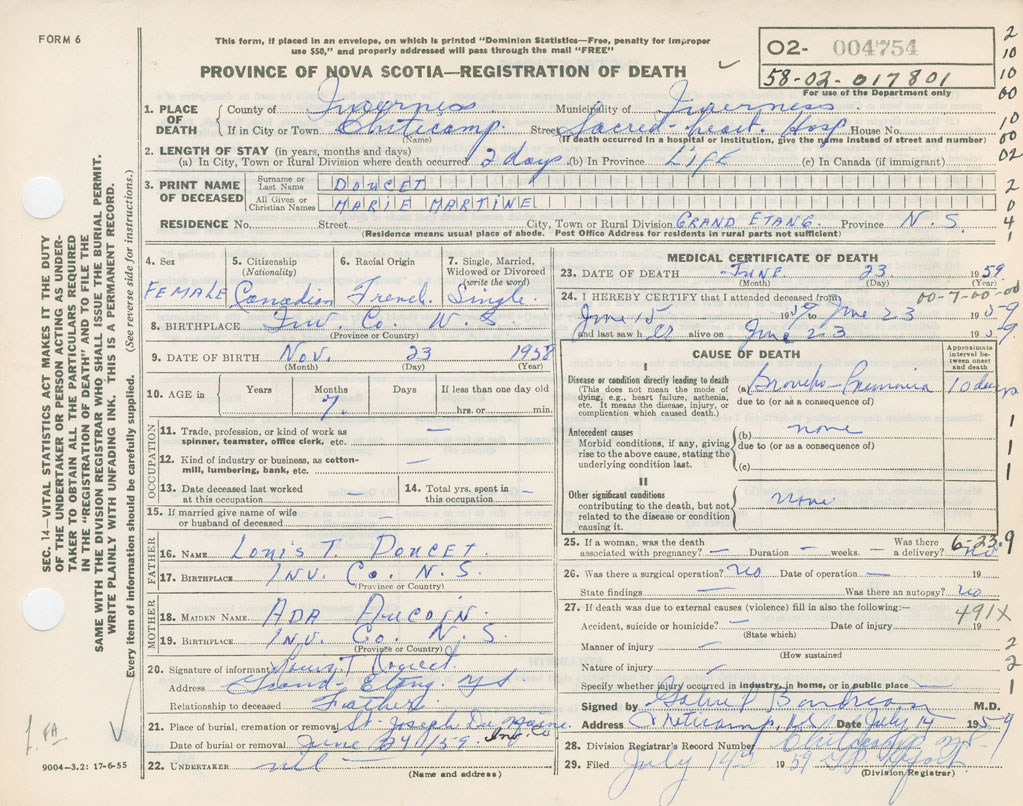 FORM 6
This form, if placed in an envelope, on which is printed "Dominion Statistics—Free, penalty for improper
use $50," and properly addressed will pass through the mail "FREE"
PROVINCE OF NOVA SCOTIA—REGISTRATION OF DEATH
02- 004754
58-02-017801
For use of the Department only
2
10
10
00
10
02
2
0
4
1
1. PLACE OF DEATH
County of Inverness Municipality of Inverness
If in City or Town Cheticamp. Street Sacred-heart. Hosp House No.
(Name) (If death occurred in a hospital or institution, give the name instead of street and number)
2. LENGTH OF STAY (in years, months and days)
(a) In City, Town or Rural Division where death occurred 2 days (b) In Province LIFE (c) In Canada (if immigrant)
3. PRINT NAME OF DECEASED
Surname or Last Name DOUCET
All Given or Christian Names MARIE MARTINE
RESIDENCE No. Street City, Town or Rural Division GRAND ETANG Province N.S.
(Residence means usual place of abode. Post Office Address for residents in rural parts not sufficient)
4. Sex
FEMALE
5. Citizenship (Nationality)
Canadian
6. Racial Origin
French
7. Single, Married, Widowed or Divorced (write the word)
Single.
8. BIRTHPLACE Inv. Co. N.S
(Province or Country)
9. DATE OF BIRTH Nov. 23 1958
(Month) (Day) (Year)
10. AGE in Years Months Days If less than one day old
7. hrs. or min.
OCCUPATION
11. Trade, profession, or kind of work as spinner, teamster, office clerk, etc. —
12. Kind of industry or business, as cotton-mill, lumbering, bank, etc. —
13. Date deceased last worked at this occupation —
14. Total yrs. spent in this occupation —
15. If married give name of wife or husband of deceased —
FATHER
16. NAME Louis T. Doucet.
17. BIRTHPLACE Inv. Co. N.S.
(Province or Country)
MOTHER
18. MAIDEN NAME ADA AUCOIN.
19. BIRTHPLACE Inv. Co. N.S.
(Province or Country)
20. Signature of informant Louis T Doucet.
Address Grand-Etang NS
Relationship to deceased Father
21. Place of burial, cremation or removal St. Joseph Du Moine. Inv Co
Date of burial or removal June 24/59.
22. UNDERTAKER nil
(Name and address)
MEDICAL CERTIFICATE OF DEATH
23. DATE OF DEATH JUNE 23 1959.
(Month) (Day) (Year)
00-7-00-00
24. I HEREBY CERTIFY that I attended deceased from
June 15 1959 to June 23 1959
and last saw h er alive on June 23 1959.
CAUSE OF DEATH
Approximate interval between onset and death
I
Disease or condition directly leading to death
(This does not mean the mode of dying, e.g., heart failure, asthenia, etc. It means the disease, injury, or complication which caused death.)
(a) Broncho-Pneumonia 10 days
due to (or as a consequence of)
Antecedent causes
Morbid conditions, if any, giving rise to the above cause, stating the underlying condition last.
(b) none
due to (or as a consequence of)
(c)
II
Other significant conditions
contributing to the death, but not related to the disease or condition causing it.
none
1
1
1
25. If a woman, was the death associated with pregnancy? — Duration — weeks. — Was there a delivery? no
6-23.9
26. Was there a surgical operation? no Date of operation — 19
State findings — Was there an autopsy? no
27. If death was due to external causes (violence) fill in also the following:—
491X
Accident, suicide or homicide? — Date of injury 19
(State which)
Manner of injury — 2
(How sustained)
Nature of injury — 2
Specify whether injury occurred in industry, in home, or in public place — 1
Signed by M.D.
Address Cheticamp, N.S. Date July 14 1959
28. Division Registrar's Record Number
29. Filed July 14 1959
(Division Registrar)
SEC. 14—VITAL STATISTICS ACT MAKES IT THE DUTY
OF THE UNDERTAKER OR PERSON ACTING AS UNDER-
TAKER TO OBTAIN ALL THE PARTICULARS REQUIRED
IN THE "REGISTRATION OF DEATH" AND TO FILE THE
SAME WITH THE DIVISION REGISTRAR WHO SHALL ISSUE THE BURIAL PERMIT.
WRITE PLAINLY WITH UNFADING INK. THIS IS A PERMANENT RECORD.
Every item of information should be carefully supplied. (See reverse side for instructions.)
9004-3.2: 17-6-55